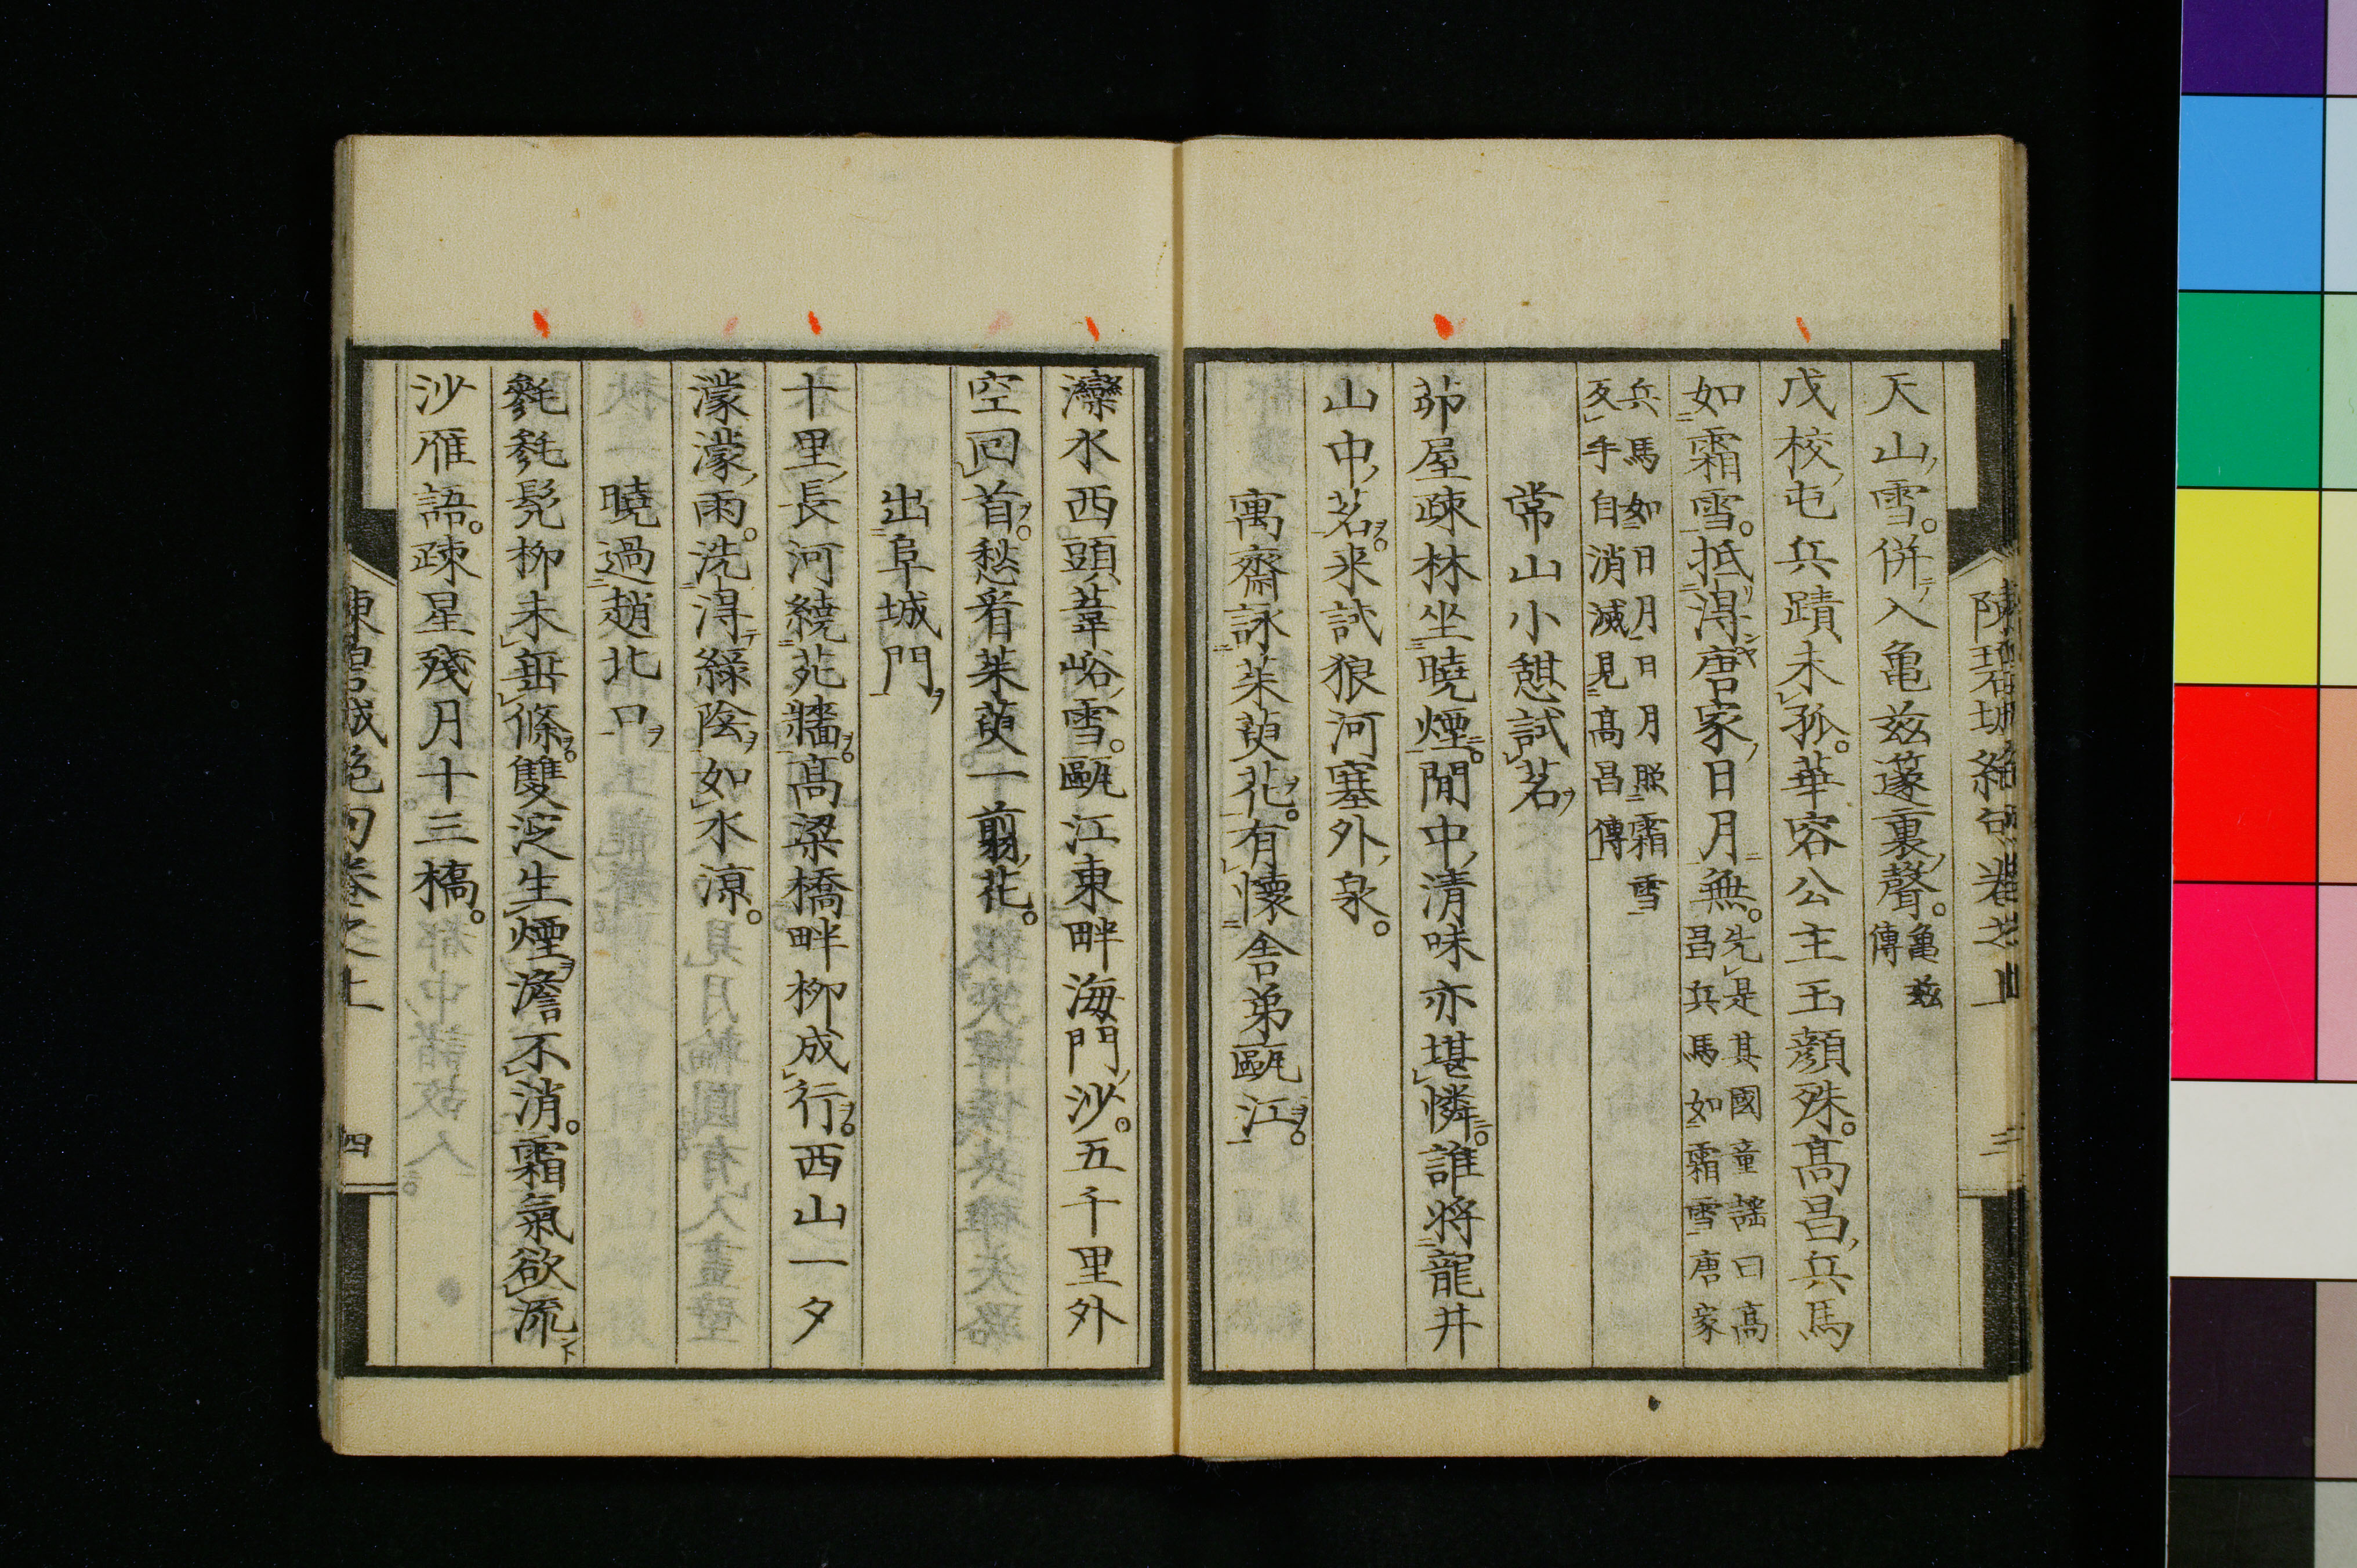 天山雪。併入亀茲蓬裏聲。亀茲傳
戊校屯兵蹟未孤。華容公主玉顔殊。髙昌兵馬
如霜雪。抵得唐家日月無。先是其國童謡曰髙昌兵馬如霜雪唐家
兵馬如日月日月照霜雪
反手自消滅見髙昌傳
常山小憩試茗
茆屋疎林坐曉煙。閒中清味亦堪憐。誰将龍井
山中茗。来試狼河塞外泉。
寓齋詠茱萸花。有懷舎弟甌江。
灤水西頭葦峪雪。甌江東畔海門沙。五千里外
空回首。愁看茱萸一剪花。
出阜城門
十里長河繞苑牆。髙梁橋畔柳成行。西山一夕
濛濛雨。洗得緑陰如水涼。
曉過趙北口
毿毿髡柳未無條。雙淀生煙澹不消。霜氣欲流
沙雁語。疎星殘月十三橋。
絶句巻之上
四